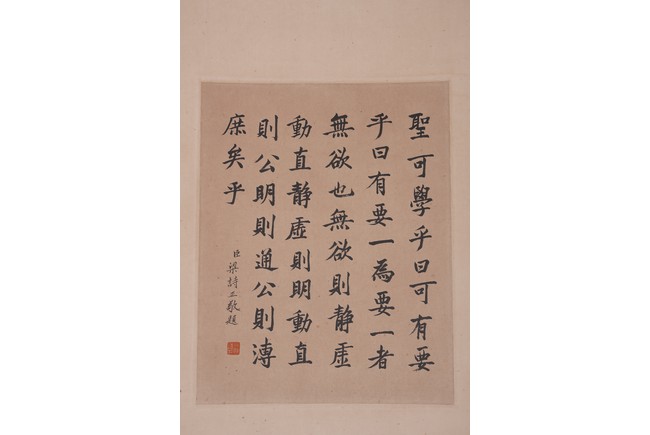 聖可學乎曰可有要
乎曰有要一為要一者
無欲也無欲則靜虛
動直靜虛則明動直
則公明則通公則溥
庶矣乎
臣梁詩正敬題